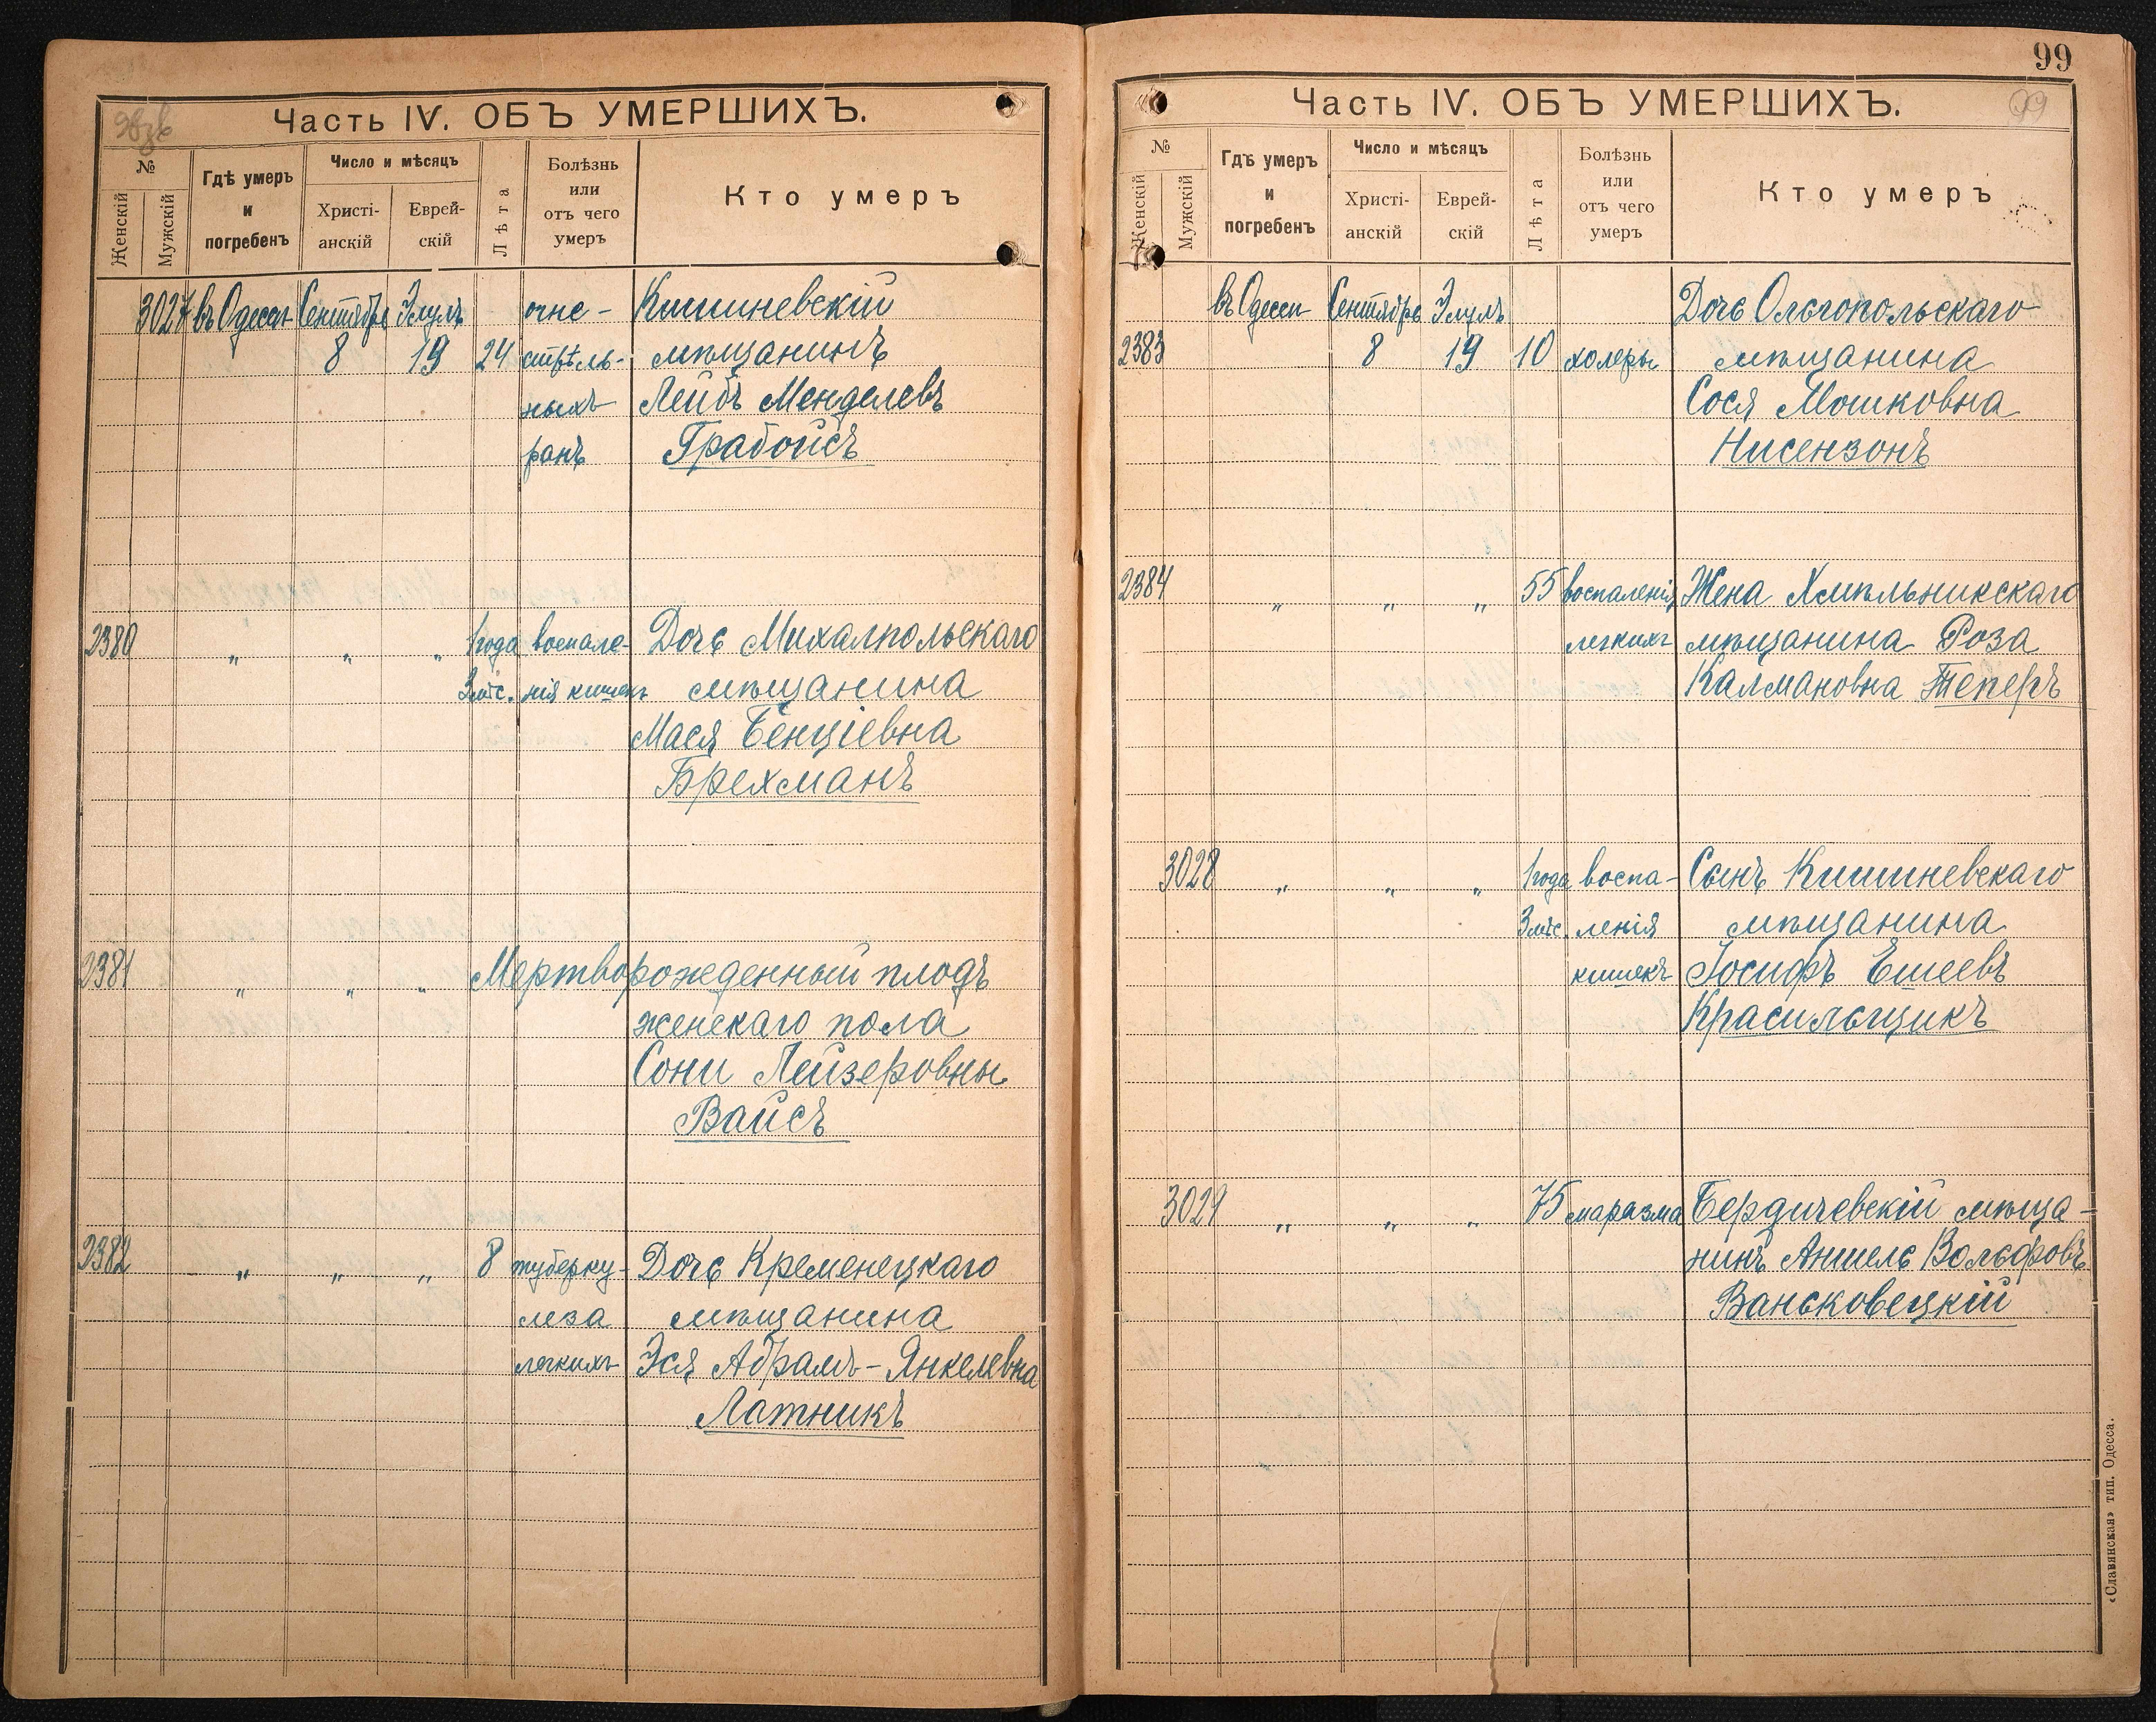 Часть IV. ОБЪ УМЕРШИХЪ.
№
Женскій
Мужскій
Гдѣ умеръ
и
погребенъ
Число и мѣсяцъ
Христі-
анскій
Еврей-
скій
Лѣта
Болѣзнь
или
отъ чего
умеръ
Кто умеръ
3027 въ Одессѣ Сентябрь Элулъ огне- Кишиневскій
8 19 24 стрѣль- мѣщанинъ
ныхъ Лейбъ Менделевъ
ранъ Грабойсъ
2380 " " " 1 года воспале- Дочь Михалпольскаго
3 мѣс. нія кишекъ мѣщанина
Мася Бенціевна
Брехманъ
2381 " " " Мертворожденный плодъ
женскаго пола
Сони Лейзеровны
Вайсъ
2382 " " " 8 туберку- Дочь Кременецкаго
леза мѣщанина
легкихъ Эся Абрамъ-Янкелевна
Латникъ
99
Часть IV. ОБЪ УМЕРШИХЪ.
99
№
Женскій
Мужскій
Гдѣ умеръ
и
погребенъ
Число и мѣсяцъ
Христі-
анскій
Еврей-
скій
Лѣта
Болѣзнь
или
отъ чего
умеръ
Кто умеръ
въ Одессѣ Сентябрь Элулъ Дочь Ольгопольскаго
2383 8 19 10 холеры мѣщанина
Сося Мошковна
Нисензонъ
2384 " " " 55 воспаленія Жена Хмѣльникскаго
легкихъ мѣщанина Роза
Калмановна Теперъ
3028 " " " 1 года воспа- Сынъ Кишиневскаго
3 мѣс. ленія мѣщанина
кишекъ Іосифъ Ешеевъ
Красильщикъ
3029 " " " 75 маразма Бердичевскій мѣща-
нинъ Аншель Вольфовъ
Ваньковецкій
«Славянская» тип. Одесса.